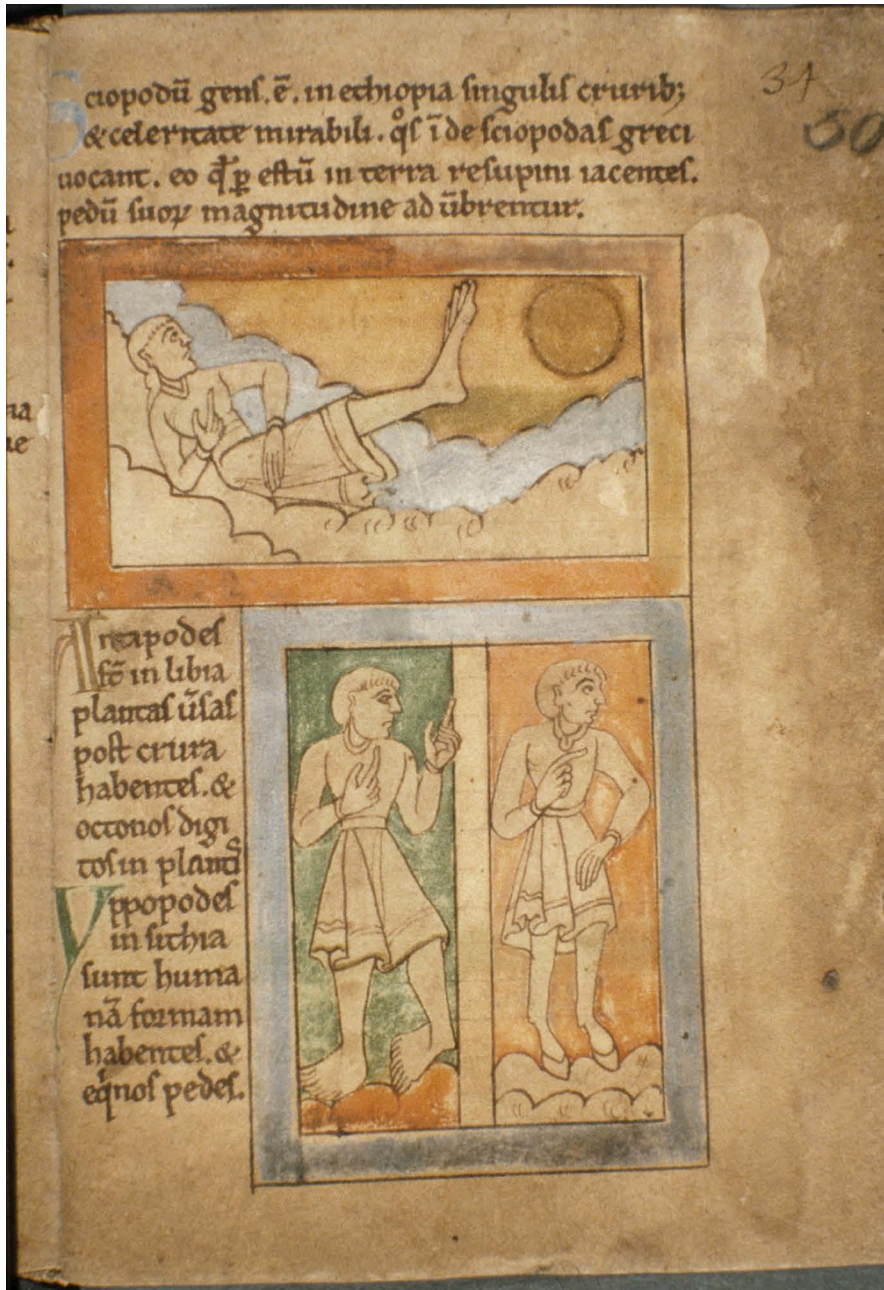 Sciopodū gens .ē. in ethiopia singulis crurib;
& celeritate mirabili. q̊s īde sciopodas greci
uocant. eo qd̄ p̱ estū in terra resupini iacentes.
pedū suoꝝ magnitudine ad ūbrentur.
34
50
Antapodes
st̄ in libia
plantas ūsas
post crura
habentes. &
octonos digi
tos in plantis
Yppopodes
in sithia
sunt huma
nā formam
habentes. &
eqͥnos pedes.